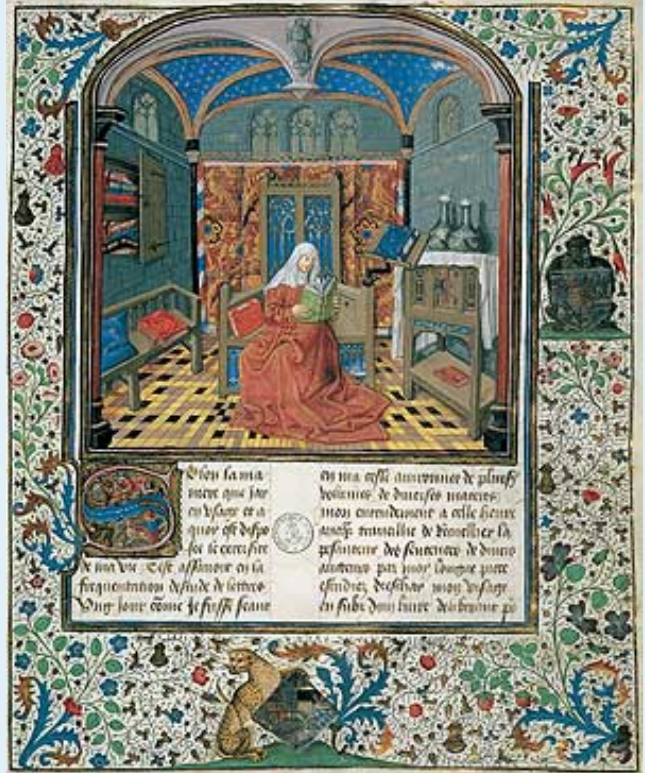 Selon la ma
niere que jay
en usage et a
quoy est dispo
se le exercise
de ma vie Cest assavoir en la
frequentation destude de lettres
Ung jour come je fusse seant
en ma celle avironnee de plus
volumes de diverses matieres
mon entendement a celle heure
travaillie de la
pesanteur des sentences de divers
aucteurs par moy longue piece
estudiez mon visage
en du livre